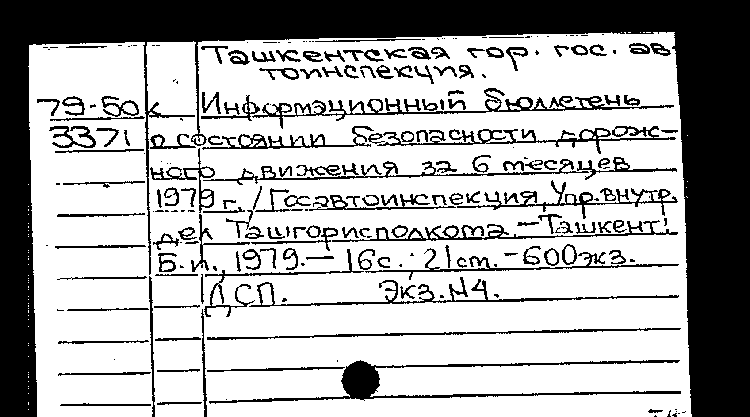 Ташкентская гор. гос. ав-
тоинспекция.
79-50к Информационный бюллетень
3371 о состоянии безопасности дорож-
ного движения за 6 месяцев
1979 г. / Госавтоинспекция, Упр. внутр.
дел Ташгорисполкома. - Ташкент:
Б.и., 1979. - 16с.; 21см. - 600экз.
ДСП. Экз. N4.